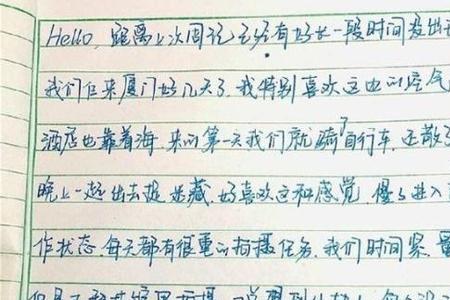 Hello, 距离上次周记已经有好长一段时间没出
我们住来厦门好几天了,我特别喜欢这边的空气
酒店也靠着海,来的第一天我们就骑了自行车,还散了
晚上一起出去捉迷藏,好喜欢这种感觉 慢慢进入
作状态,每天都有很重的拍摄任务,我们时间紧,量